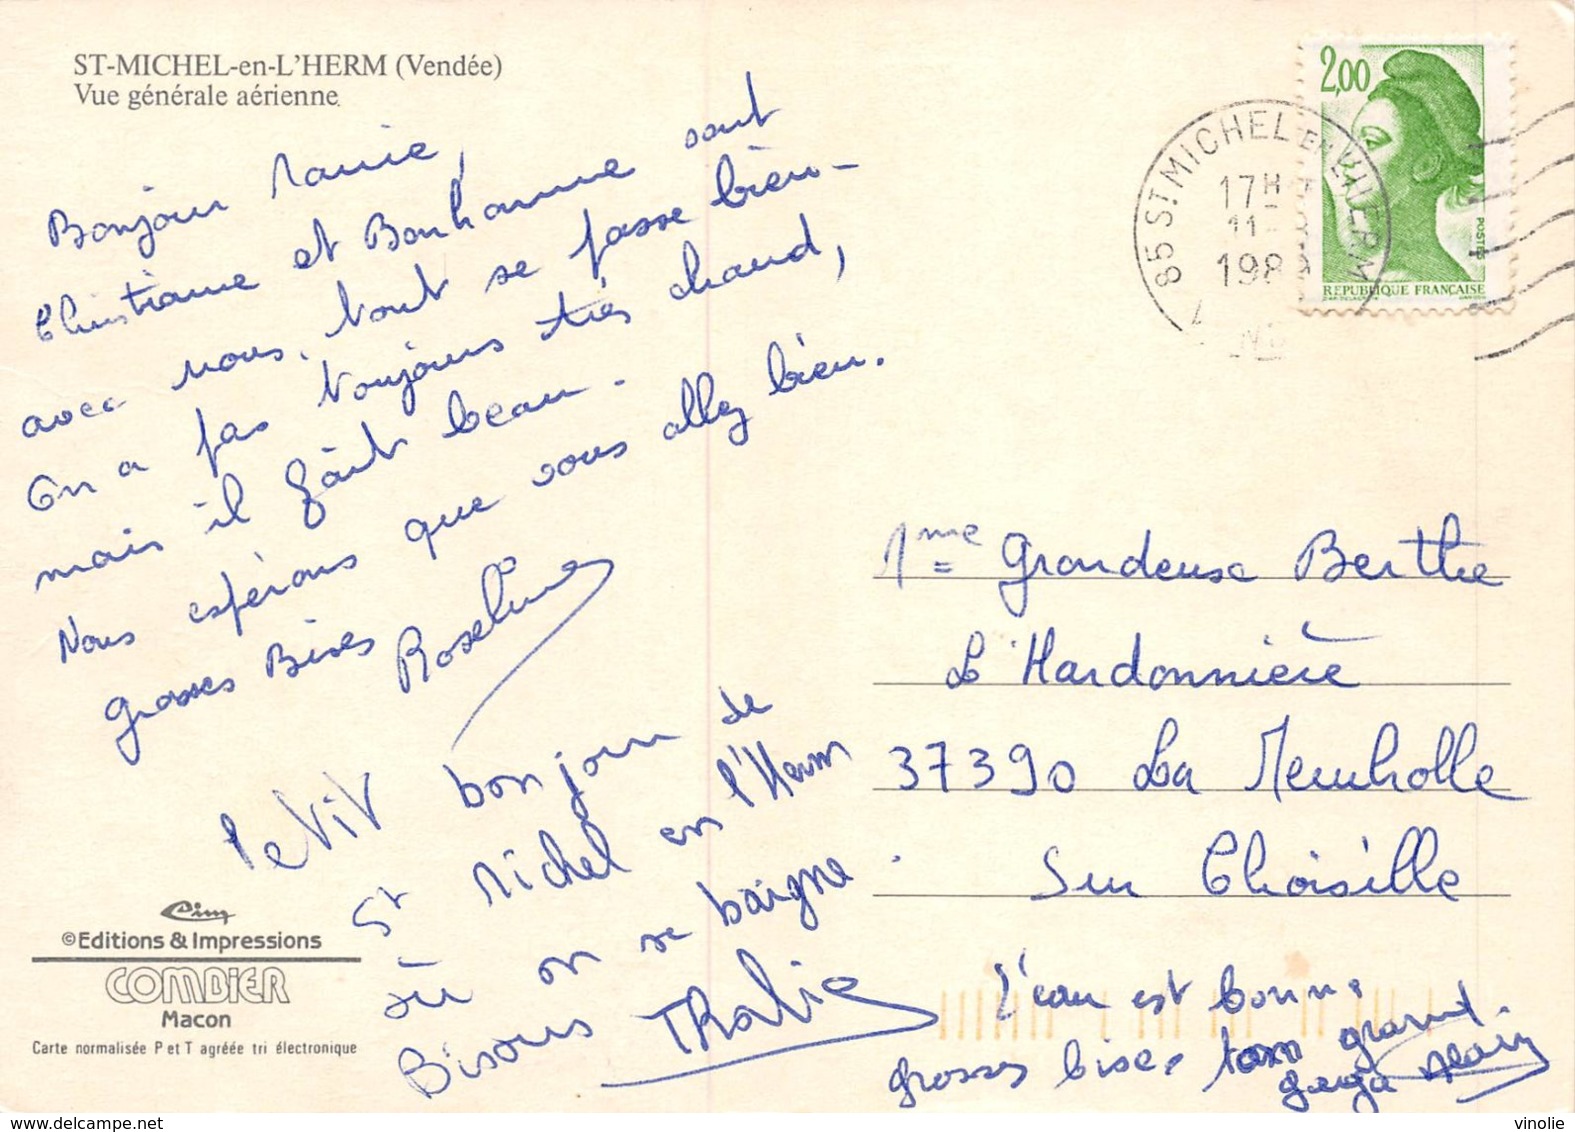 ST-MICHEL-en-L'HERM (Vendée)
Vue générale aérienne
Bonjour Mamie,
Christiane et Bonhomme sont
avec nous. Tout se passe bien -
On a pas toujours très chaud,
mais il fait beau.
Nous espérons que vous allez bien.
Grosses Bises
Roseline
Petit bonjour de
St Michel en l'Herm
où on se baigne
Bisous Thalie
©Editions & Impressions
COMBIER
Macon
Carte normalisée P et T agréée tri électronique
2,00
POSTES
REPUBLIQUE FRANÇAISE
85 ST. MICHEL EN L'HERM
17H
11-8
198
Mme Grandeuse Berthe
L'Hardonnière
37390 La Membrolle
Sur Choisille
L'eau est bonne
grosses bises ton grand
Alain
vinolie